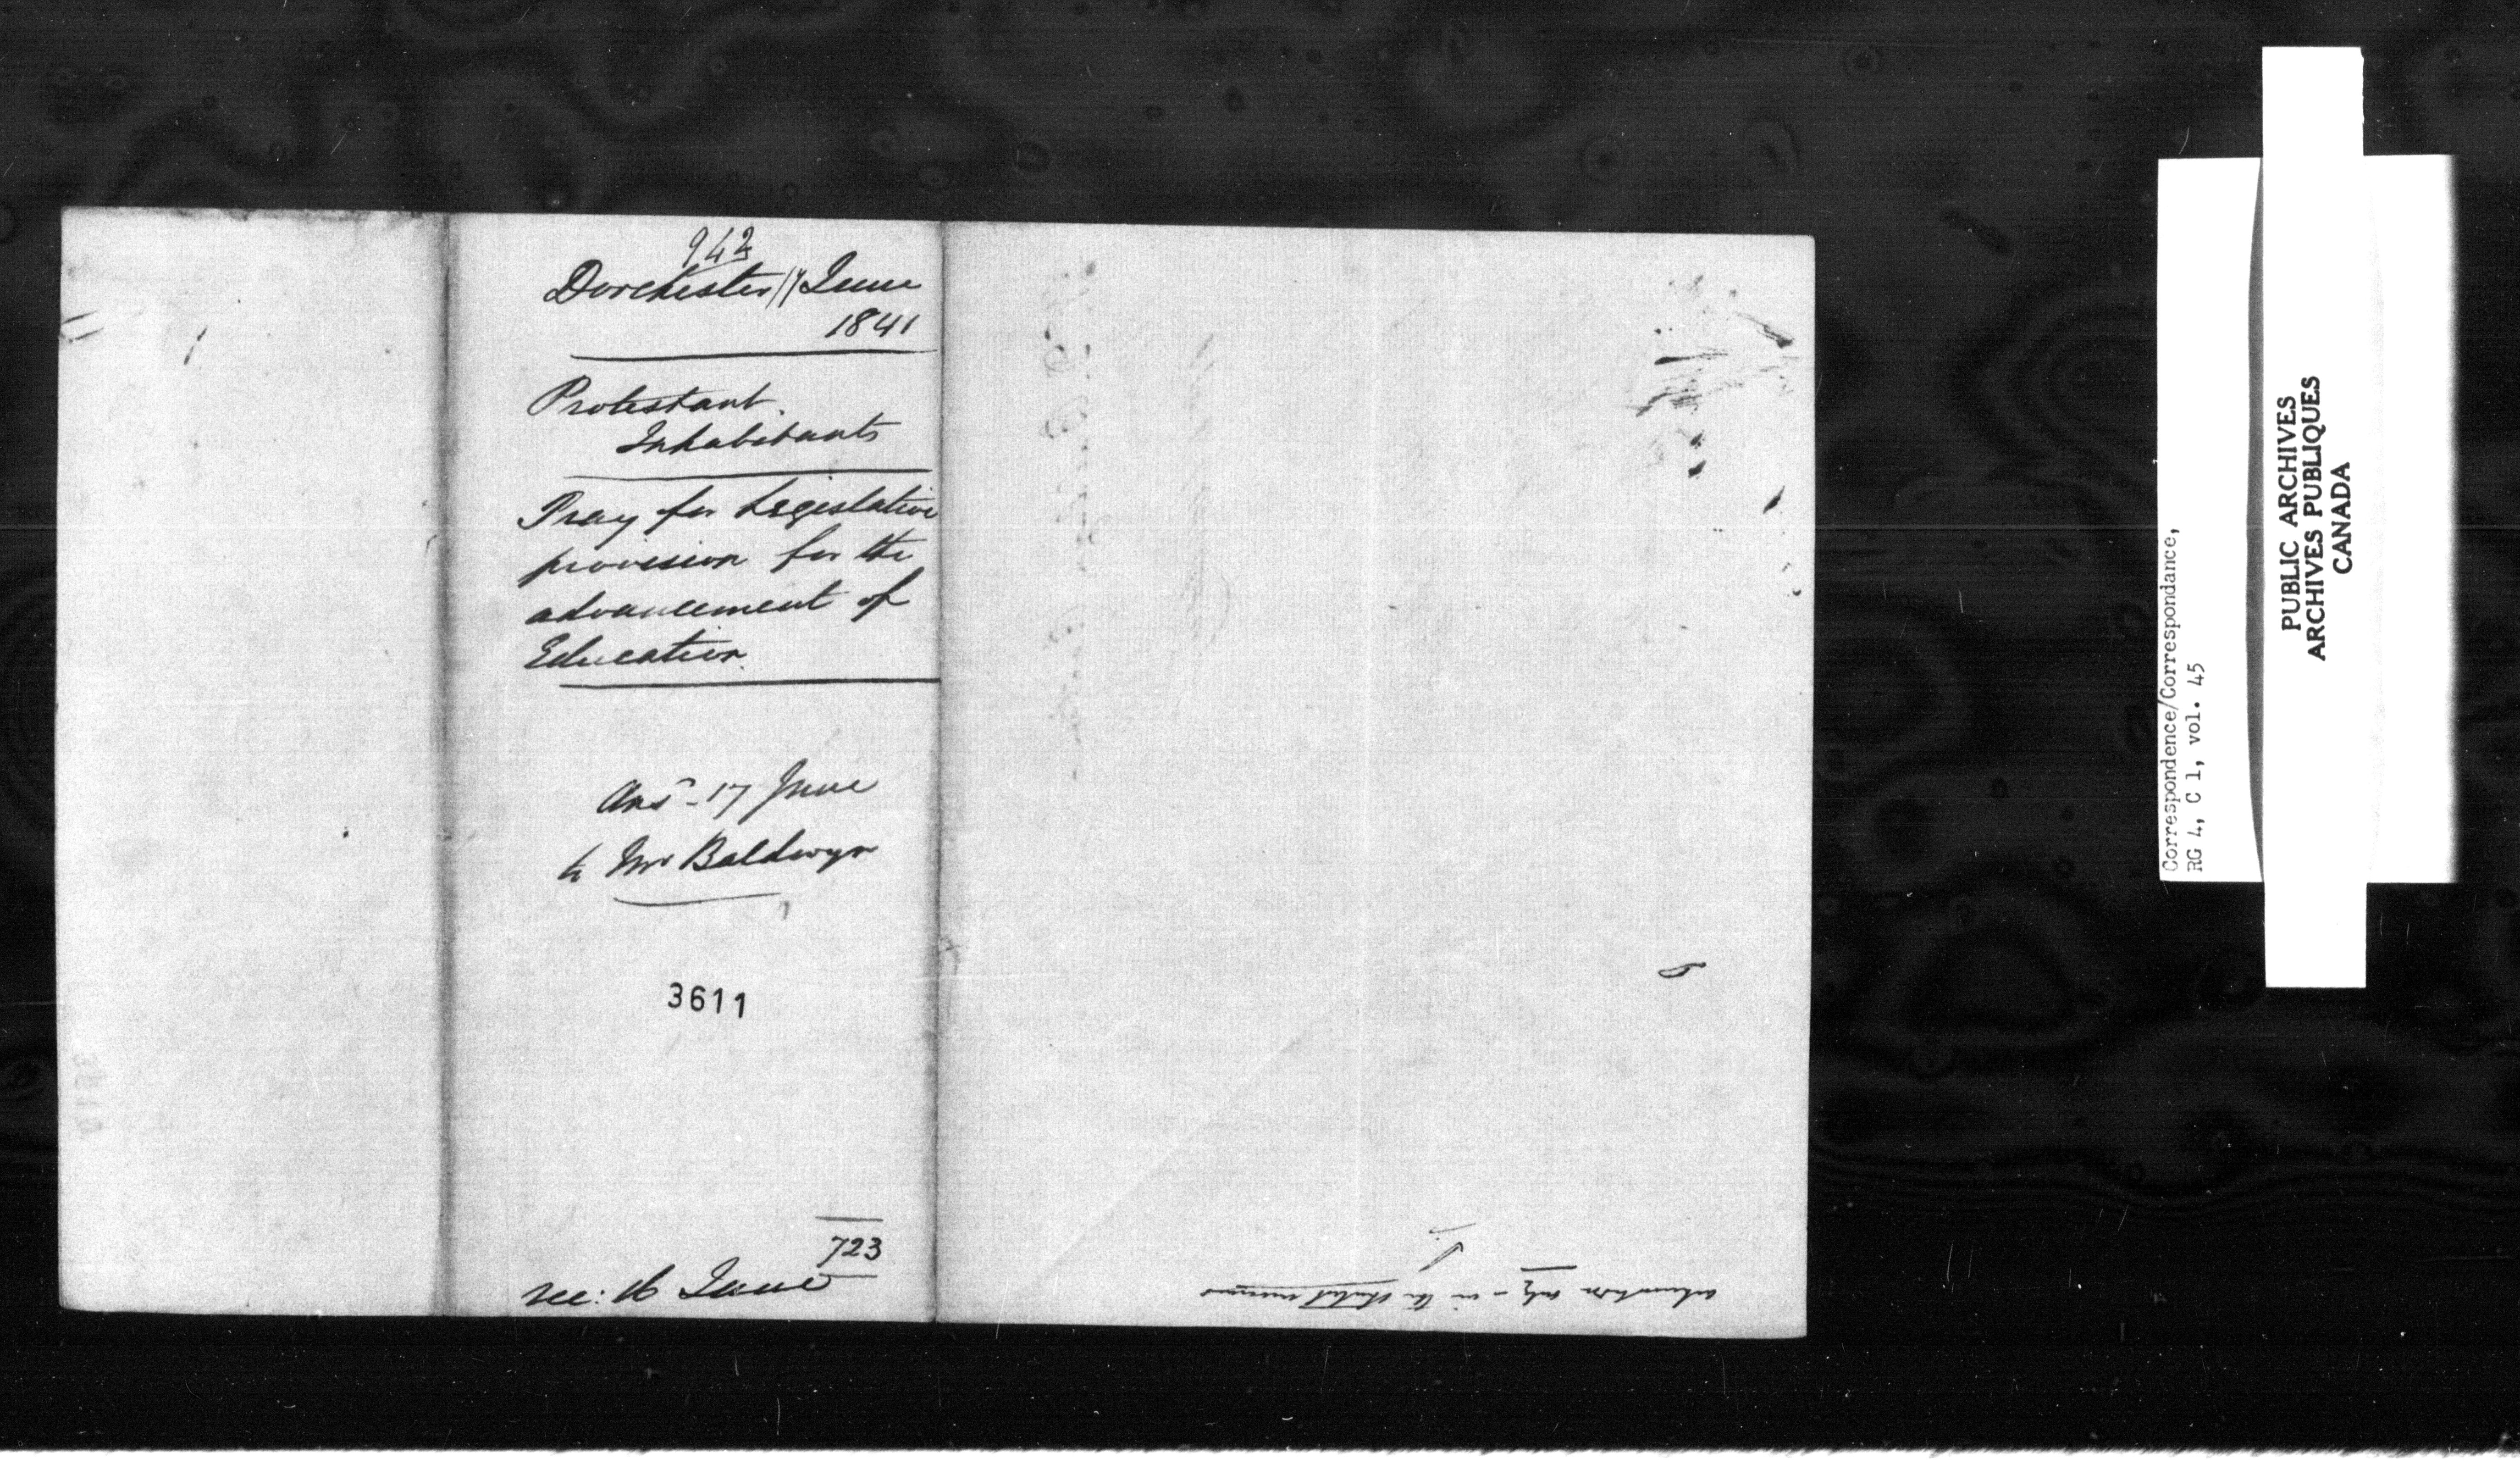 942
Dorchester 11 June
1841
Protestant
Inhabitants
Pray for Legislative
provision for the
advancement of
Education
Ans - 17 June
to Mr Baldwyn
3611
723
rec: 16 June
in the
Correspondence/Correspondance,
RG 4, C 1, vol. 45
PUBLIC ARCHIVES
ARCHIVES PUBLIQUES
CANADA